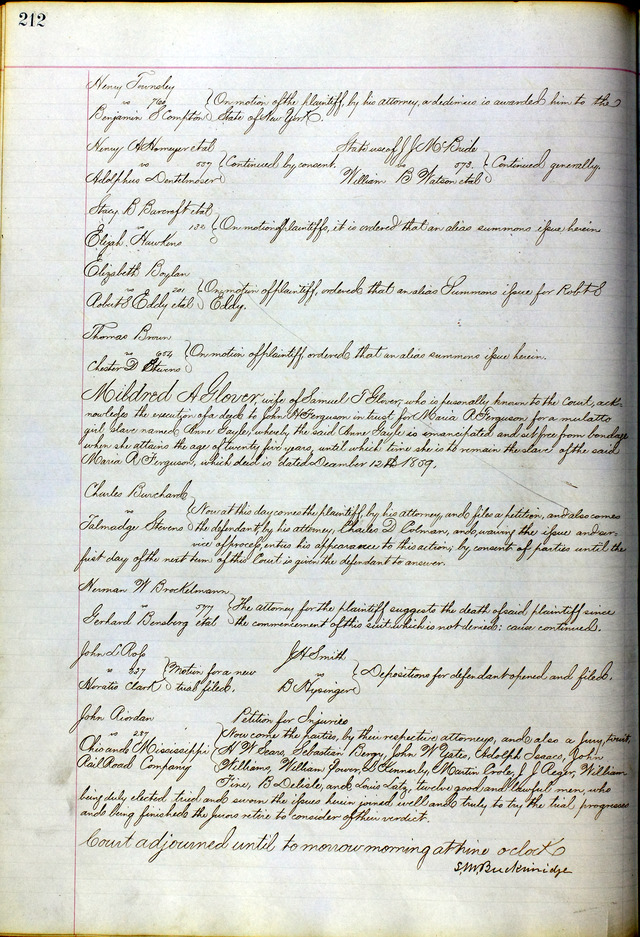 212
Henry Townsley
vs
Benjamin S Compton
On motion of the plaintiff, by his attorney, a dedimus is awarded him to the
State of New York.
Henry A Homeyer etal
vs 537
Adolphus Dentelmoser
Continued by consent.
State use of J J McBride
vs 573.
William B Watson etal
Continued generally.
Stacy B Barcroft etal
vs 132
Elijah Hawkins
On motion of plaintiffs, it is ordered that an alias summons issue herein
Elizabeth Boylan
vs 201
Robert S Eddy etal
On motion of plaintiff, ordered that an alias Summons issue for Robt S
Eddy.
Thomas Brown
vs 654
Chester D Stevens
On motion of plaintiff, ordered that an alias summons issue herein.
Mildred A Glover, wife of Samuel T Glover, who is personally known to the Court, ack-
nowledges the execution of a deed to John H Ferguson in trust for Maria A Ferguson for a mulatto
girl slave named Anne Gayle, whereby the said Anne Gayle is emancipated and set free from bondage
when she attains the age of twenty five years, until which time she is to remain the slave of the said
Maria A Ferguson, which deed is dated December 12th 1859.
Charles Burchard
vs
Talmadge Stevens
Now at this day comes the plaintiff, by his attorney, and files a petition, and also comes
the defendant, by his attorney, Charles D Colman, and, waiving the issue and ser-
vice of process, enters his appearance to this action; by consent of parties until the
first day of the next term of this Court is given the defendant to answer.
Herman W Brockelmann
vs 377
Gerhard Bensberg etal
The attorney for the plaintiff suggests the death of said plaintiff since
the commencement of this suit which is not denied: cause continued.
John L Ross
vs 337
Horatio Clark
Motion for a new
trial filed.
J H Smith
vs
B Nysinger
Depositions for defendant opened and filed.
John Riordan
vs 237
Ohio and Mississippi
Rail Road Company
Petition for Injuries
Now come the parties, by their respective attorneys, and also a Jury, to wit,
H W Sears, Sebastian Bergy, John W Yeates, Adolph Isaacs, John
Williams, William Power, D Kennerly, Martin Poole, J J Reger, William
Fine, B Delisle, and Louis Laty, twelve good and lawful men, who
being duly elected tried and sworn the issues herein joined well and truly to try the trial progresses
and being finished the jurors retire to consider of their verdict.
Court adjourned until to morrow morning at nine o clock
S. M. Breckinridge